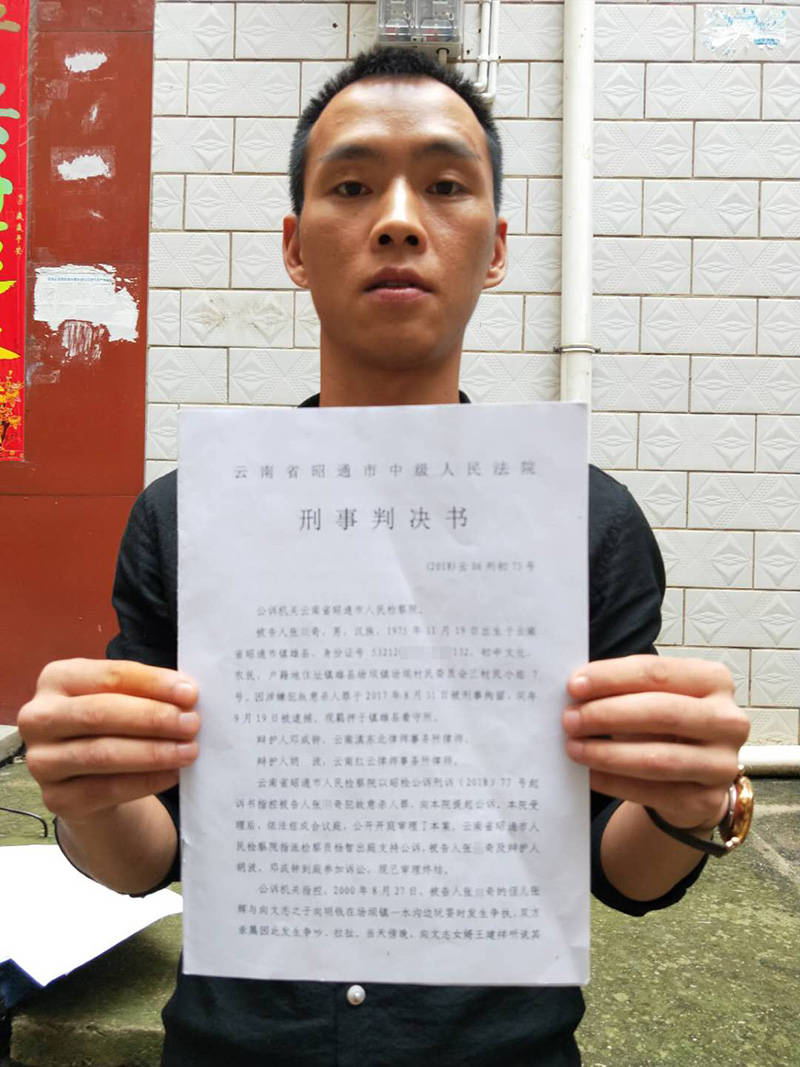 岁岁平安
云南省昭通市中级人民法院
刑事判决书
(2018)云06刑初75号
公诉机关云南省昭通市人民检察院。
被告人张川奇，男，汉族，1975年11月19日出生于云南
省昭通市镇雄县，身份证号53212 132，初中文化，
农民，户籍地住址镇雄县坊坝镇坊坝村民委员会三村民小组7
号。因涉嫌犯故意杀人罪于2017年8月31日被刑事拘留，同年
9月19日被逮捕。现羁押于镇雄县看守所。
辩护人邓成钟，云南滇东北律师事务所律师。
辩护人胡 波，云南红云律师事务所律师。
云南省昭通市人民检察院以昭检公诉刑诉（2018）77号起
诉书指控被告人张 奇犯故意杀人罪，向本院提起公诉。本院受
理后，依法组成合议庭，公开开庭审理了本案。云南省昭通市人
民检察院指派检察员杨智出庭支持公诉，被告人张 奇及辩护人
胡波、邓成钟到庭参加诉讼。现已审理终结。
公诉机关指控，2000年8月27日，被告人张 奇的侄儿张
辉与向文志之子向明钱在坊坝镇一水沟边玩耍时发生争执，双方
亲属因此发生争吵、拉扯。当天傍晚，向文志女婿王建祥听说其